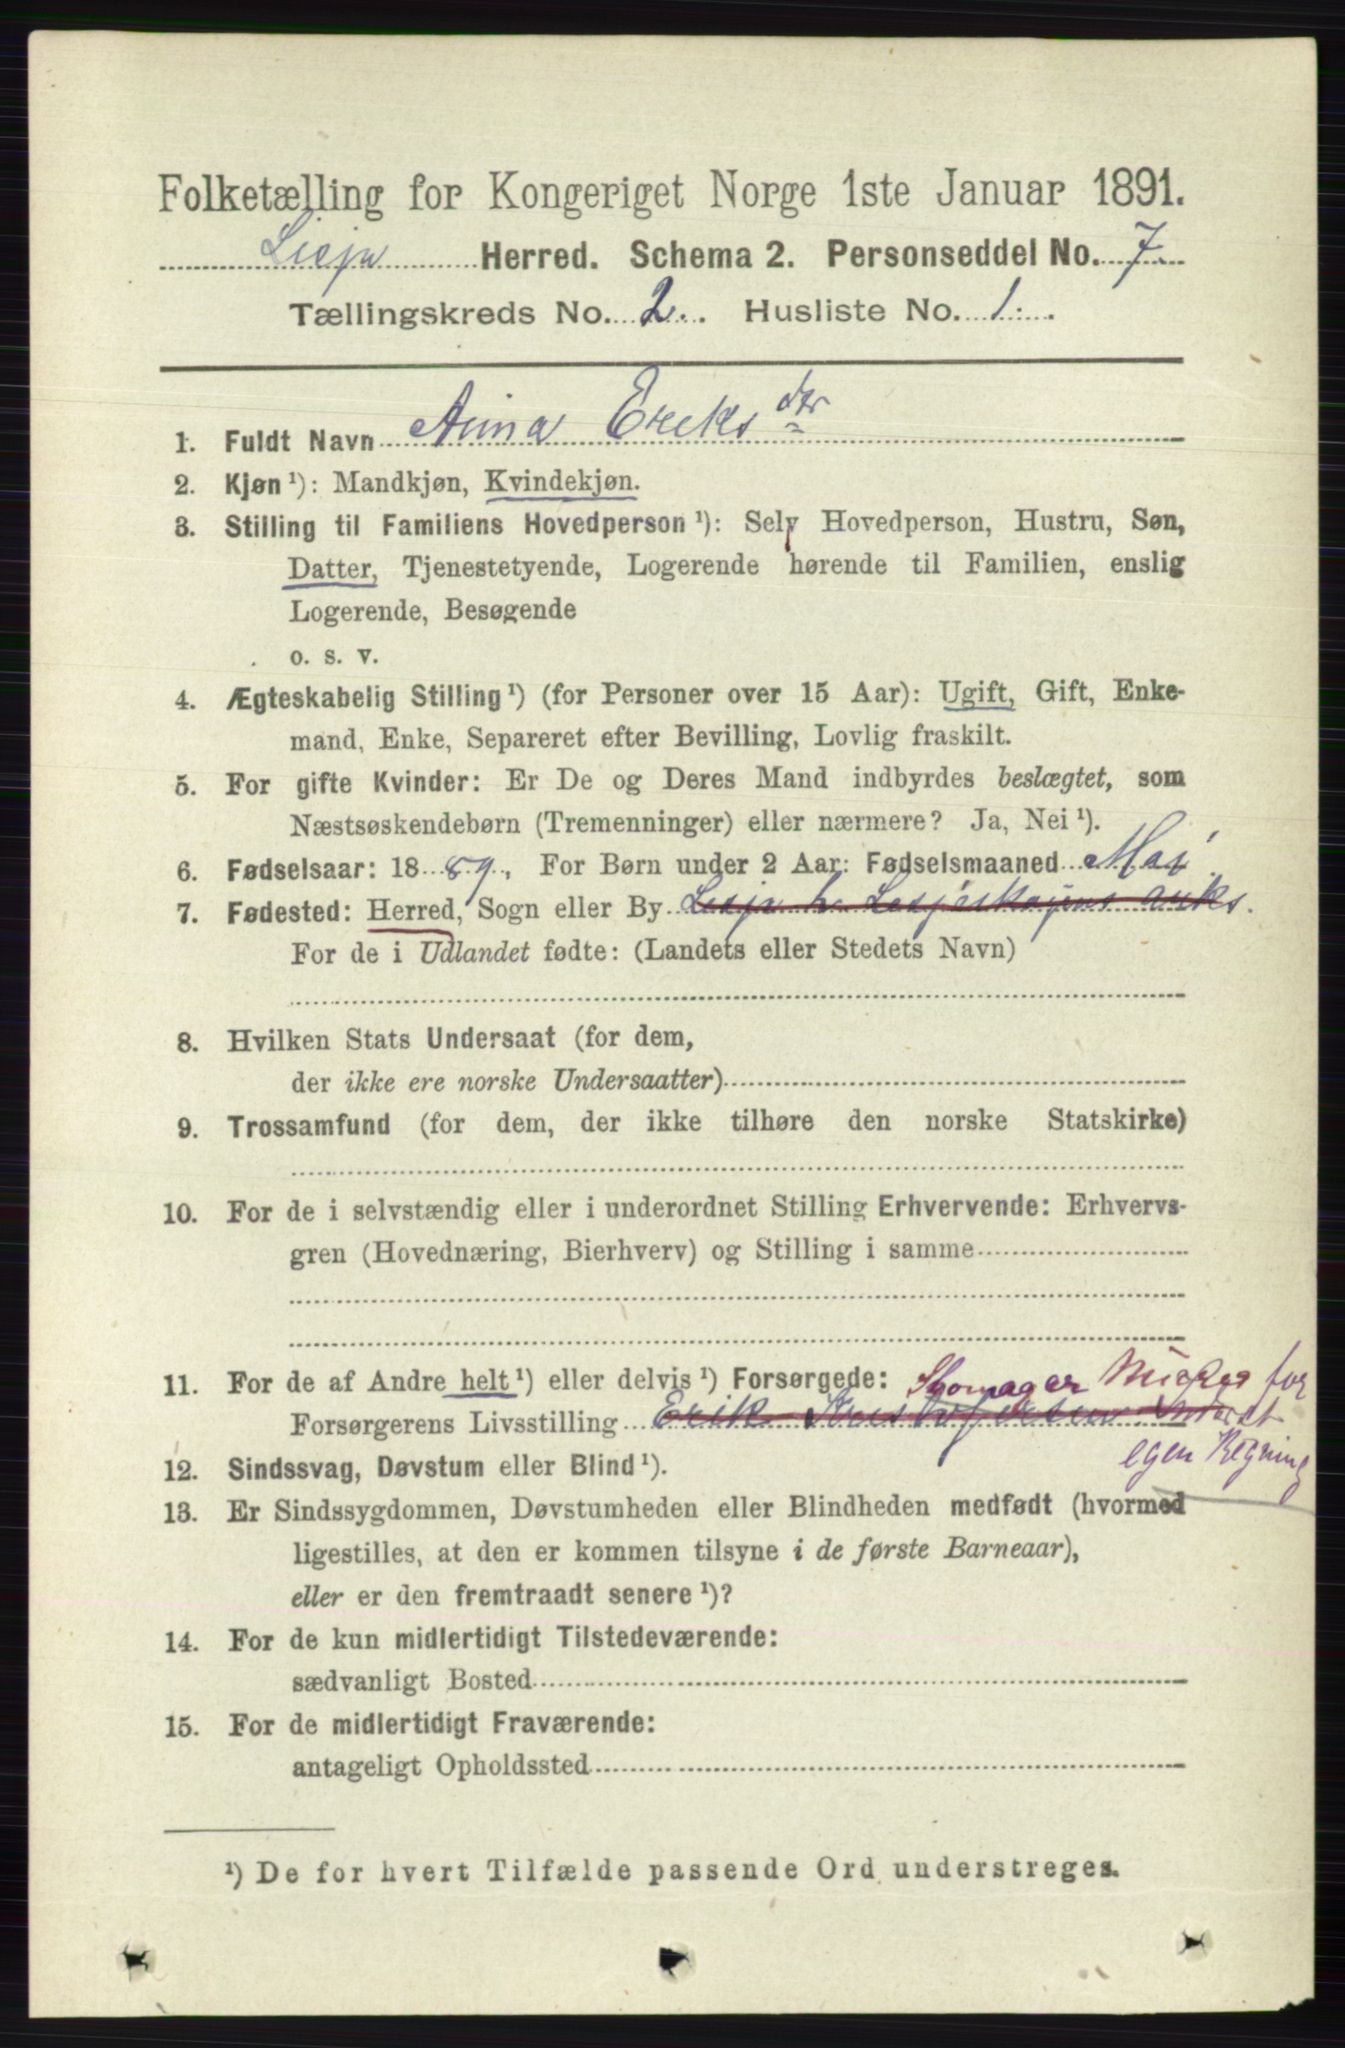 Folketælling for Kongeriget Norge 1ste Januar 1891.
Lesja Herred. Schema 2. Personseddel No. 7.
Tællingskreds No. 2. Husliste No. 1.
1. Fuldt Navn Anna Ereksdtr
2. Kjøn ¹): Mandkjøn, Kvindekjøn.
3. Stilling til Familiens Hovedperson ¹): Selv Hovedperson, Hustru, Søn,
Datter, Tjenestetyende, Logerende hørende til Familien, enslig
Logerende, Besøgende
o. s. v.
4. Ægteskabelig Stilling ¹) (for Personer over 15 Aar): Ugift, Gift, Enke-
mand, Enke, Separeret efter Bevilling, Lovlig fraskilt.
5. For gifte Kvinder: Er De og Deres Mand indbyrdes beslægtet, som
Næstsøskendebørn (Tremenninger) eller nærmere? Ja, Nei ¹).
6. Fødselsaar: 1889, For Børn under 2 Aar: Fødselsmaaned Maj
7. Fødested: Herred, Sogn eller By Lesja h. Lesjeskogens anks.
For de i Udlandet fødte: (Landets eller Stedets Navn)
8. Hvilken Stats Undersaat (for dem,
der ikke ere norske Undersaatter)
9. Trossamfund (for dem, der ikke tilhøre den norske Statskirke)
10. For de i selvstændig eller i underordnet Stilling Erhvervende: Erhvervs-
gren (Hovednæring, Bierhverv) og Stilling i samme
11. For de af Andre helt ¹) eller delvis ¹) Forsørgede: Skomager Virker for
Forsørgerens Livsstilling Erik Kristofersen
egen Regning
12. Sindssvag, Døvstum eller Blind ¹).
13. Er Sindssygdommen, Døvstumheden eller Blindheden medfødt (hvormed
ligestilles, at den er kommen tilsyne i de første Barneaar),
eller er den fremtraadt senere ¹)?
14. For de kun midlertidigt Tilstedeværende:
sædvanligt Bosted
15. For de midlertidigt Fraværende:
antageligt Opholdssted
¹) De for hvert Tilfælde passende Ord understreges.